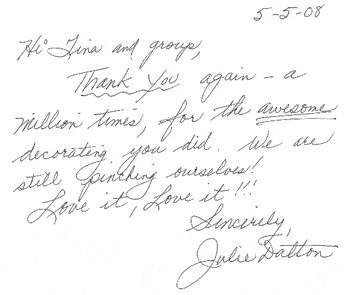 5-5-08
Hi Tina and group,
Thank You again - a
million times, for the awesome
decorating you did. We are
still pinching ourselves!
Love it, Love it!!!
Sincerely,
Julie Dalton